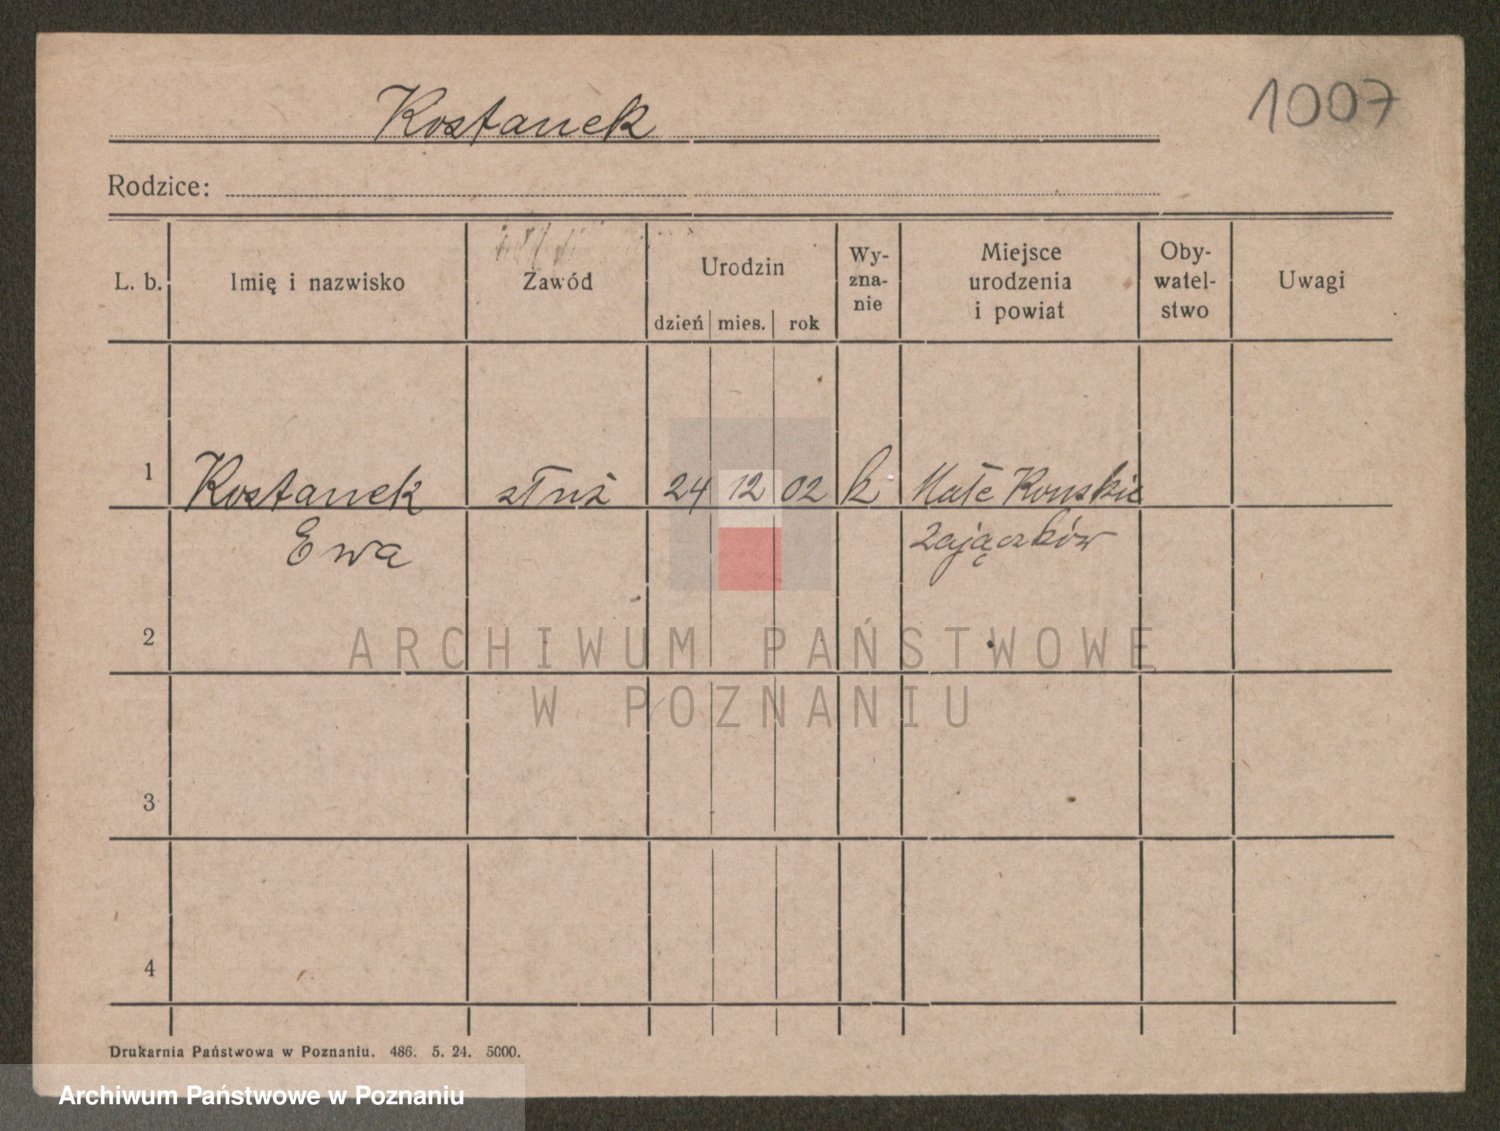 Kostanek
1007
Rodzice:
L. b.
Imię i nazwisko
Zawód
Urodzin
dzień mies. rok
Wy-
zna-
nie
Miejsce
urodzenia
i powiat
Oby-
watel-
stwo
Uwagi
1 Kostanek służ 24 12 02 k Małe Konskie
Ewa Zajączków
2
ARCHIWUM PAŃSTWOWE
W POZNANIU
3
4
Drukarnia Państwowa w Poznaniu. 486. 5. 24. 5000.
Archiwum Państwowe w Poznaniu